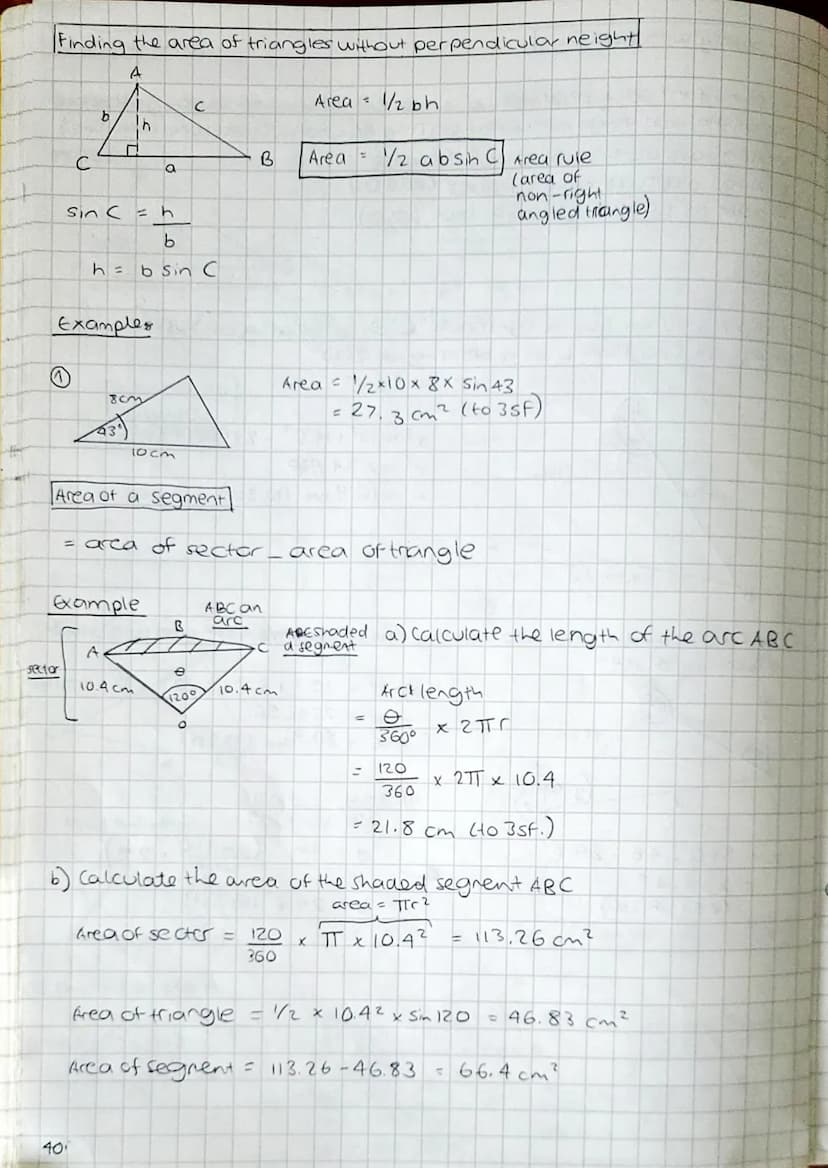 Finding the area of triangles without perpendicular height
A
b
c
h
C
a
B
Area = 1/2 bh
Area = 1/2 absin C
Area rule
(area of
non-right
angled triangle)
sin C = h
b
h = b sin C
Examples
1
8cm
43°
10cm
Area = 1/2 × 10 × 8 × sin 43
= 27.3 cm² (to 3sf)
Area of a segment
= area of sector - area of triangle
Example
ABC an
arc
B
A
C
ABC shaded
a segment
sector
10.4 cm
θ
120°
10.4 cm
O
a) Calculate the length of the arc ABC
Arc length
= θ
360° × 2πr
= 120
360 × 2π × 10.4
= 21.8 cm (to 3sf.)
b) Calculate the area of the shaded segment ABC
area = πr²
Area of sector = 120
360 × π × 10.4² = 113.26 cm²
Area of triangle = 1/2 × 10.4² × sin 120 = 46.83 cm²
Area of segment = 113.26 - 46.83 = 66.4 cm²
40